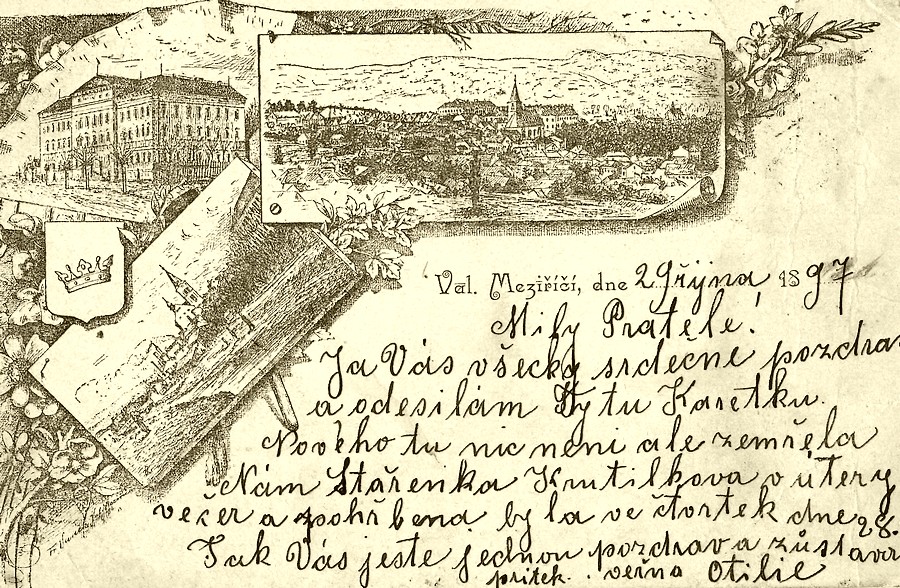 Val. Meziříčí, dne 29 října 1897
Milý Pratéle!
Ja Vás všecky srdečně pozdra
a odesilám Vy tu Karetku.
Nového tu nic neni ale zemřela
Nám Stařenka Krutilkova v úterý
večer a pohřbena byla ve čtvrtek dne 28.
Tak Vás ješte jednou pozdrav a zůstavá
přitek. věrna Otilie